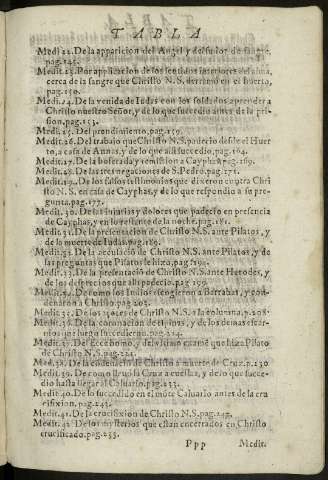 TABLA
Medi 22. De la aparicion del Angel, y del sudor de sangre.
pag. 145.
Medit. 23. Por aplicacion de los sentidos interiores del alma,
cerca de la sangre que Christo N. S. derramò en el huerto,
pag. 150.
Medit. 24. De la venida de Iudas con los soldados a prender a
Christo nuestro Señor, y de lo que sucedio antes de la pri-
sion, pag. 153.
Medit. 25. Del prendimiento, pag. 159.
Medit. 26. Del trabajo que Christo N. S. padecio desde el Huer
to, a casa de Annas, y de lo que alli sucedio, pag. 164.
Medit. 27. De la bofetada y remission a Cayphas, pag. 169.
Medit. 28. De las tres negaciones de S. Pedro, pag. 171.
Medit. 29. De los falsos testimonios que dixeron contra Chri
sto N. S. en casa de Cayphas, y de lo que respondio a su pre-
gunta, pag. 177.
Medit. 30. De las injurias y dolores que padecio en presencia
de Cayphas, y en lo restante de la noche, pag. 181.
Medit. 31. De la presentacion de Christo N. S. ante Pilatos, y
de la muerte de Iudas, pag. 189.
Medit. 32. De la acusacion de Christo N. S. ante Pilatos, y de
las preguntas que Pilatos le hizo, pag. 194.
Medit. 33. De la presentaciõ de Christo N. S. ante Herodes, y
de los desprecios que alli padecio, pag. 199.
Medit. 34. De como los Indios eligieron a Barrabas, y con-
denaron a Christo, pag. 203.
Medit. 35. De los açotes de Christo N. S. a la coluna, p. 208.
Medit. 36. De la coronacion de espinas, y de los demas escar-
nios que luego sucedieron, pag.
Medit. 37. Del Ecce homo, y del vltimo examẽ que hizo Pilato
de Christo N. S. pag. 224.
Medit. 38. De la condenaciõ de Christo a muerte de Cruz, p. 230
Medit. 39. De como lleuò la Cruz a cuestas, y de lo que suce-
dio hasta llegar al Caluario, pag. 233.
Medit. 40. De lo succedido en el mõte Caluario antes de la cru
cifixion, pag. 243.
Medit. 41. De la crucifixion de Christo N. S. pag. 247.
Medit. 42. De los misterios que estan encerrados en Christo
crucificado, pag. 255.
Ppp Medit.